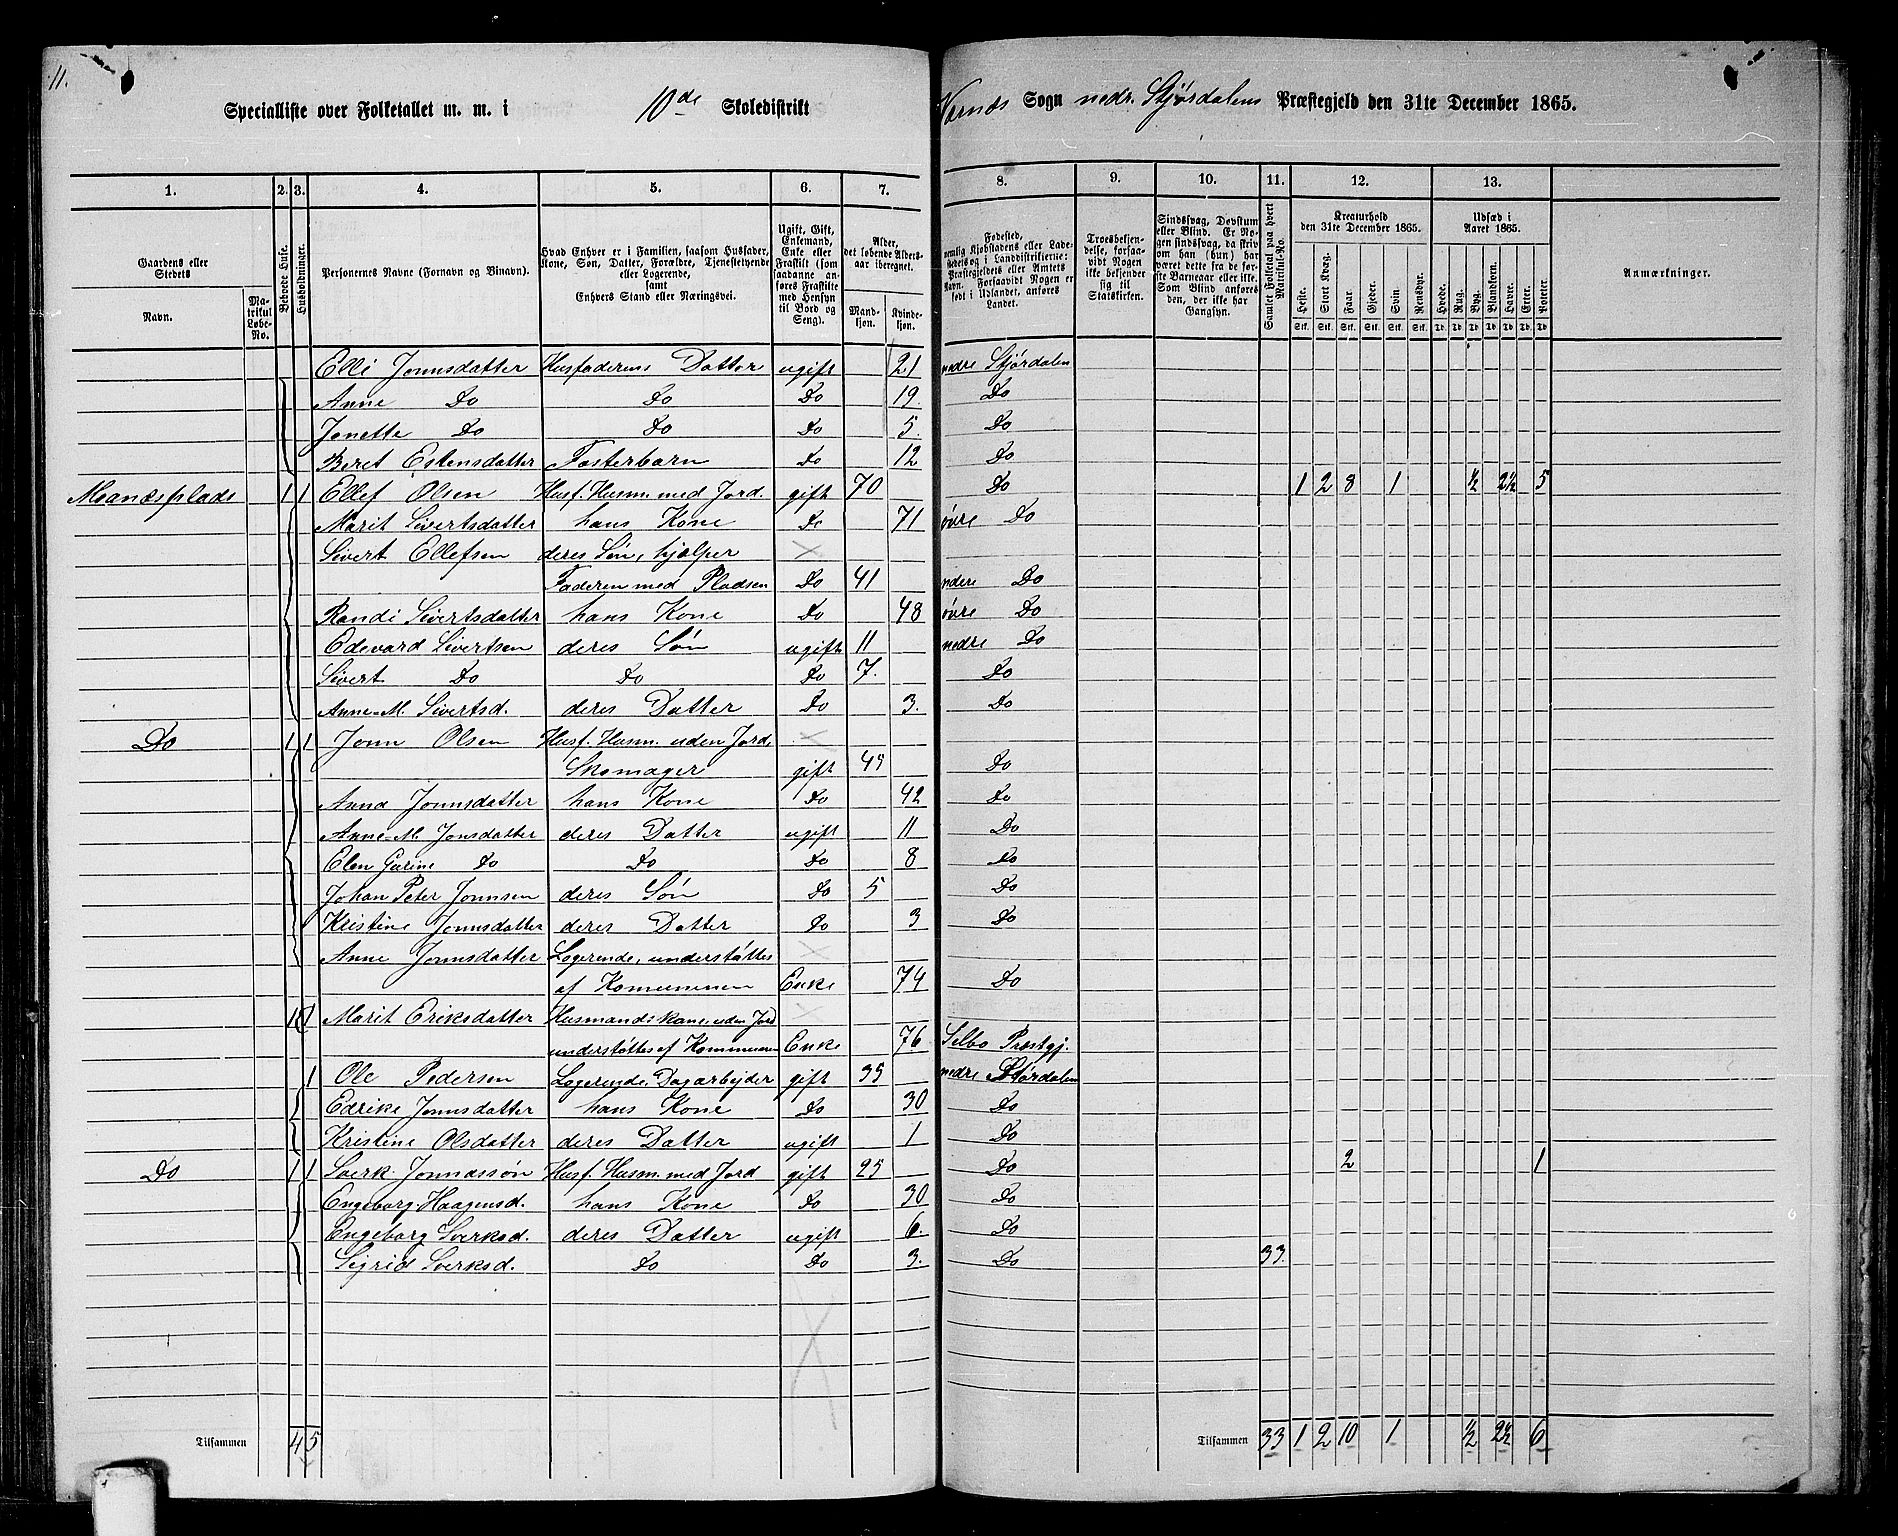 11.
Specialliste over Folketallet m. m. i 10de Skoledistrikt Værnæs Sogn nedr. Stjørdalens Præstegjeld den 31te December 1865.
1. 2. 3. 4. 5. 6. 7. 8. 9. 10. 11. 12. 13.
Gaardens eller Stedets
Navn.
Matrikul Løbe-No.
Beboede Huse.
Husholdninger.
Personernes Navne (Fornavn og Binavn).
Hvad Enhver er i Familien, saasom Husfader, Kone, Søn, Datter, Forældre, Tjenestetyende eller Logerende, samt Enhvers Stand eller Næringsvei.
Ugift, Gift, Enkemand, Enke eller Fraskilt (som saadanne anføres Fraskilte med Hensyn til Bord og Seng).
Alder, det løbende Aldersaar iberegnet.
Mandkjøn.
Kvindekjøn.
Fødested,
Troesbekjendelse, forsaavidt Nogen ikke bekjender sig til Statskirken.
Sindssvag, Døvstum eller Blind. Er Nogen sindssvag, da skriv om han (hun) har været dette fra de første Barneaar eller ikke. Som Blind anføres den, der ikke har Gangsyn.
Samlet Folketal paa hvert Matrikul-No.
Kreaturhold den 31te December 1865.
Heste. Stort Kvæg. Faar. Gjeder. Svin. Rensdyr.
Udsæd i Aaret 1865.
Hvede. Rug. Byg. Blandkorn. Havre. Erter. Poteter.
Anmærkninger.
Elli Jonnsdatter Husfaderens Datter ugift 21 nedre Stjørdalen
Anne Do Do Do 19. Do
Jonette Do Do Do 5. Do
Beret Estensdatter Fosterbarn Do 12 Do
Moanæsplads 1 1 Ellef Olsen Husf. Husm. med Jord. gift 70 Do 1 2 8 1 ½ 2½ 5
Marit Sivertsdatter hans Kone Do 71 øvre Do
Sivert Ellefsen deres Søn, hjælper
Faderen med Pladsen Do 41 nedre Do
Randi Sivertsdatter hans Kone Do 48 øvre Do
Edevard Sivertsen deres Søn ugift 11 nedre Do
Sivert Do Do Do 7. Do
Anne-M. Sivertsd. deres Datter Do 3. Do
Do 1 1 Jonn Olsen Husf. Husm. uden Jord,
Skomager gift 45 Do
Anna Jonnsdatter hans Kone Do 42 Do
Anne-M. Jonsdatter deres Datter ugift 11 Do
Elen Gurine Do Do Do 8 Do
Johan Peter Jonnsen deres Søn Do 5 Do
Kristine Jonnsdatter deres Datter Do 3 Do
Anne Jonnsdatter Logerende, understøttes
af Kommunen Enke 74 Do
1 Marit Eriksdatter Husmandskone uden Jord
understøttes af Kommunen Enke 76 Selbo Præstgj.
1 Ole Pedersen Logerende, Dagarbejder gift 35 nedre Stjørdalen
Edrike Jonnsdatter hans Kone Do 30 Do
Kristine Olsdatter deres Datter ugift 1 Do
Do 1 1 Sverk. Jonnassøn Husf. Husm. med Jord gift 25 Do 2 1
Engeborg Haagensd. hans Kone Do 30 Do
Engeborg Sverksd. deres Datter ugift 6. Do
Sigrid Sverksd. Do Do 3. Do 33.
Tilsammen 4 5 Tilsammen 33 1 2 10 1 ½ 2½ 6